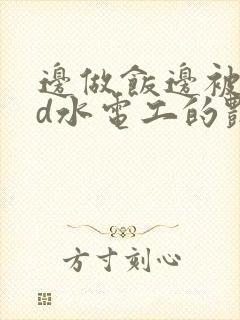 邊做飯邊被
d水電工的
方寸刻心